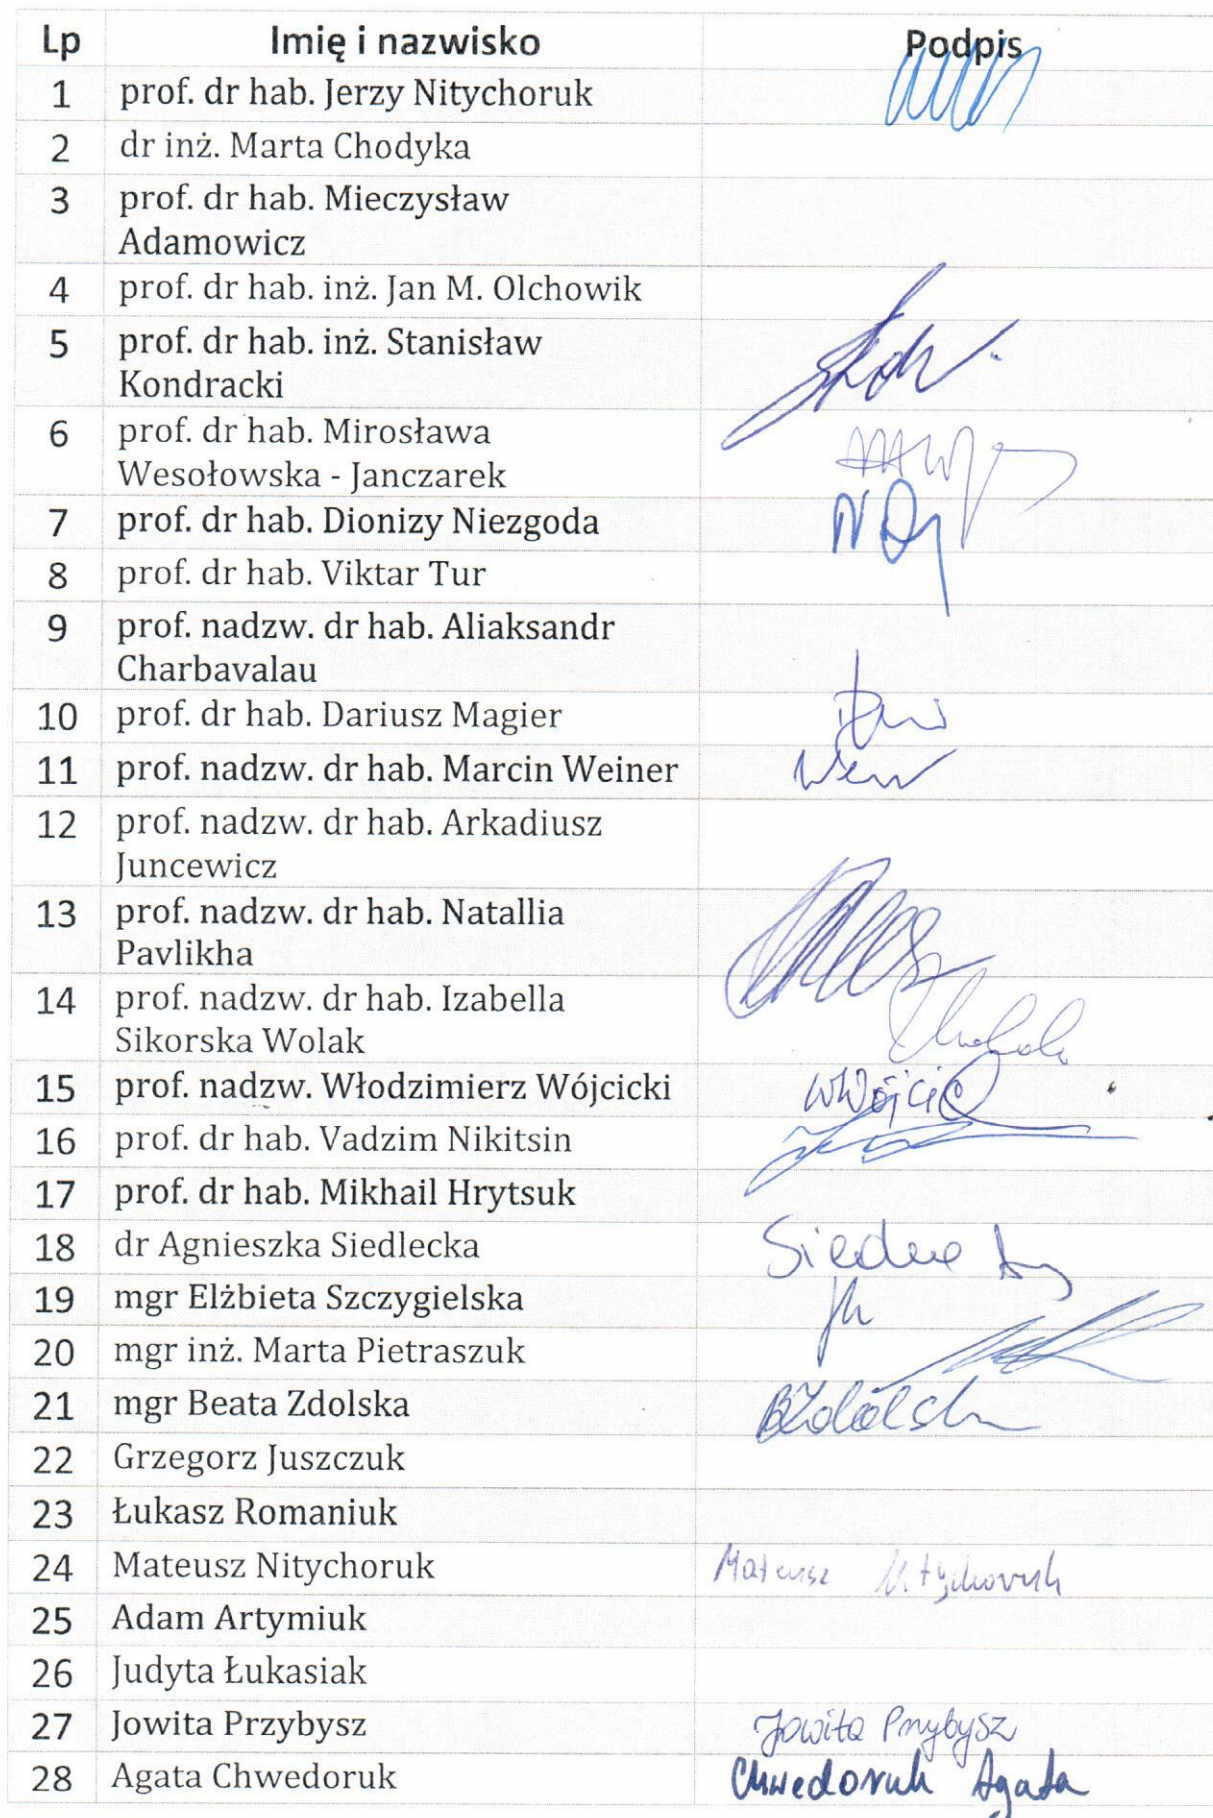 Lp Imię i nazwisko Podpis
1 prof. dr hab. Jerzy Nitychoruk
2 dr inż. Marta Chodyka
3 prof. dr hab. Mieczysław
Adamowicz
4 prof. dr hab. inż. Jan M. Olchowik
5 prof. dr hab. inż. Stanisław
Kondracki
6 prof. dr hab. Mirosława
Wesołowska - Janczarek
7 prof. dr hab. Dionizy Niezgoda
8 prof. dr hab. Viktar Tur
9 prof. nadzw. dr hab. Aliaksandr
Charbavalau
10 prof. dr hab. Dariusz Magier
11 prof. nadzw. dr hab. Marcin Weiner
12 prof. nadzw. dr hab. Arkadiusz
Juncewicz
13 prof. nadzw. dr hab. Natallia
Pavlikha
14 prof. nadzw. dr hab. Izabella
Sikorska Wolak
15 prof. nadzw. Włodzimierz Wójcicki
16 prof. dr hab. Vadzim Nikitsin
17 prof. dr hab. Mikhail Hrytsuk
18 dr Agnieszka Siedlecka
19 mgr Elżbieta Szczygielska
20 mgr inż. Marta Pietraszuk
21 mgr Beata Zdolska
22 Grzegorz Juszczuk
23 Łukasz Romaniuk
24 Mateusz Nitychoruk Mateusz Nitychoruk
25 Adam Artymiuk
26 Judyta Łukasiak
27 Jowita Przybysz Jowita Przybysz
28 Agata Chwedoruk Chwedoruk Agata